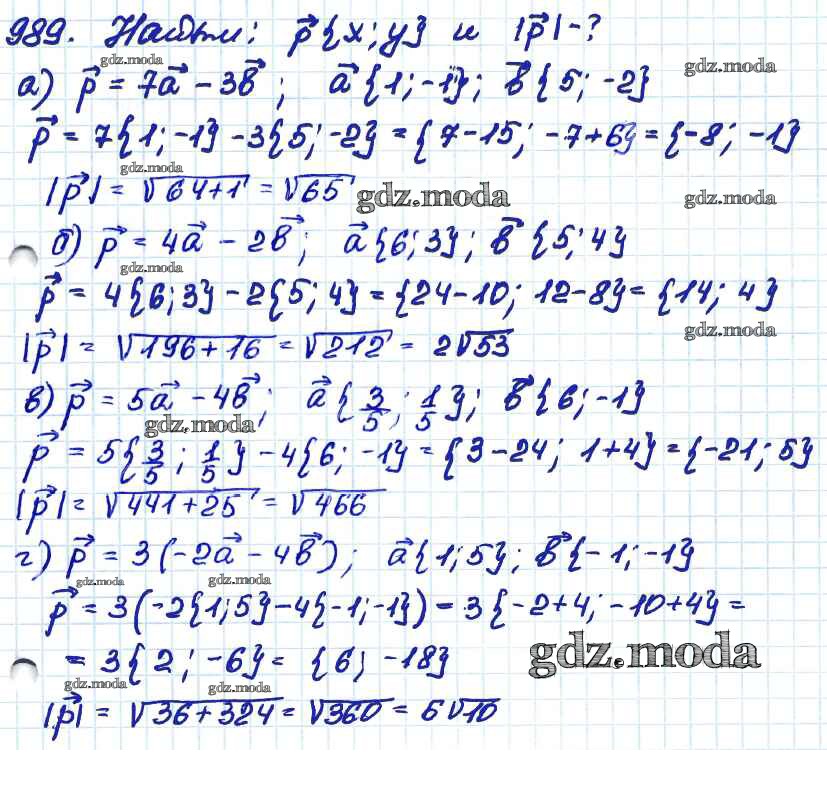 989. Найти: p⃗{x; y} и |p⃗| - ?
gdz.moda
gdz.moda
а) p⃗ = 7a⃗ - 3b⃗; a⃗{1; -1}; b⃗{5; -2}
p⃗ = 7{1; -1} - 3{5; -2} = {7-15; -7+6} = {-8; -1}
gdz.moda
|p⃗| = √64+1 = √65
gdz.moda
gdz.moda
б) p⃗ = 4a⃗ - 2b⃗; a⃗{6; 3}; b⃗{5; 4}
gdz.moda
p⃗ = 4{6; 3} - 2{5; 4} = {24-10; 12-8} = {14; 4}
gdz.moda
|p⃗| = √196+16 = √212 = 2√53
в) p⃗ = 5a⃗ - 4b⃗; a⃗{3/5; 1/5}; b⃗{6; -1}
gdz.moda
p⃗ = 5{3/5; 1/5} - 4{6; -1} = {3-24; 1+4} = {-21; 5}
|p⃗| = √441+25 = √466
г) p⃗ = 3(-2a⃗ - 4b⃗); a⃗{1; 5}; b⃗{-1; -1}
gdz.moda
gdz.moda
p⃗ = 3(-2{1; 5} - 4{-1; -1}) = 3{-2+4; -10+4} =
= 3{2; -6} = {6; -18}
gdz.moda
gdz.moda
gdz.moda
|p⃗| = √36+324 = √360 = 6√10